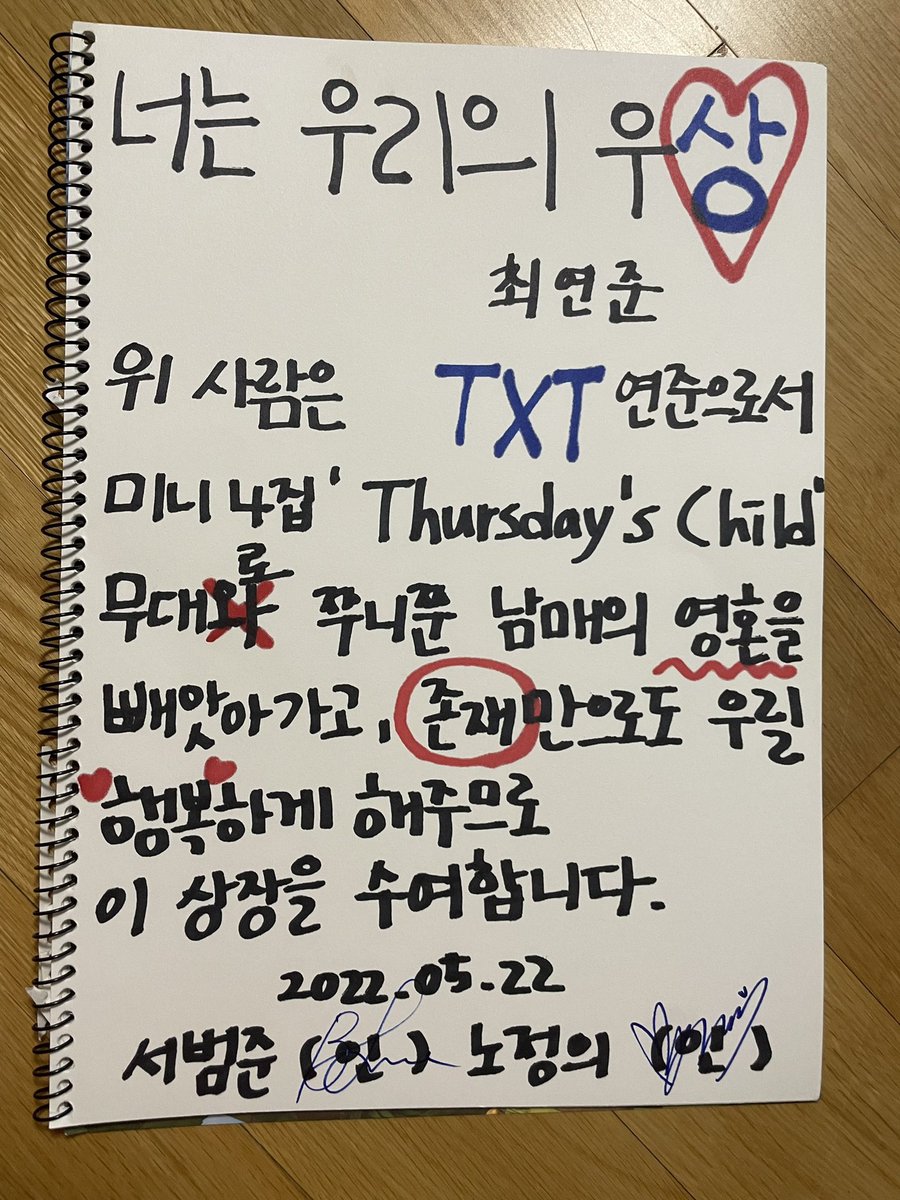 너는 우리의 우상
최연준
위 사람은 TXT 연준으로서
미니 4집 'Thursday's Child'
로
무대와 쭈니쭌 남매의 영혼을
빼앗아가고, 존재만으로도 우릴
행복하게 해주므로
이 상장을 수여합니다.
2022.05.22
서범준 (인) 노정의 (인)